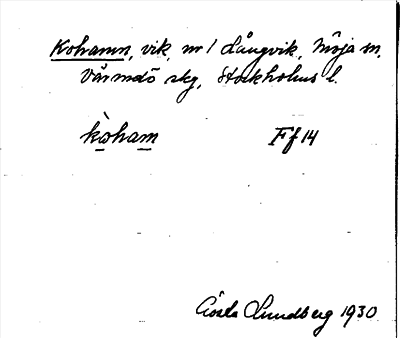 Kohamn, vik, nr 1 Långvik, Möja sn,
Värmdö skg, Stockholms l.
kòham Ff 14
Gösta Lundberg 1930